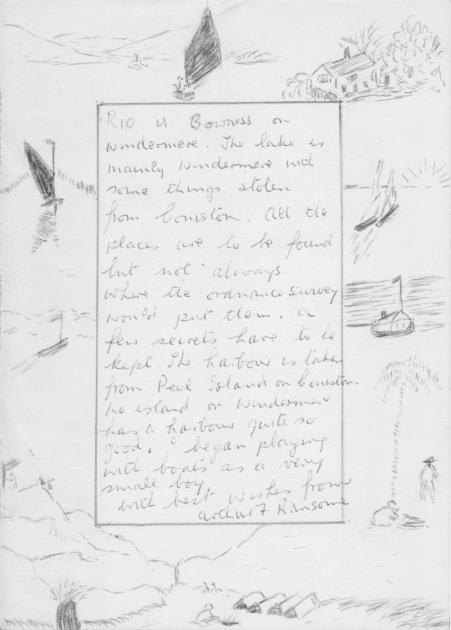 Rio is Bowness on
Windermere. The lake is
mainly Windermere with
some things stolen
from Coniston. All the
places are to be found
but not always
where the ordnance survey
would put them. a
few secrets have to be
kept. The harbour is taken
from Peel Island on Coniston.
No island on Windermere
has a harbour quite so
good. I began playing
with boats as a very
small boy.
with best wishes from
Arthur Ransome